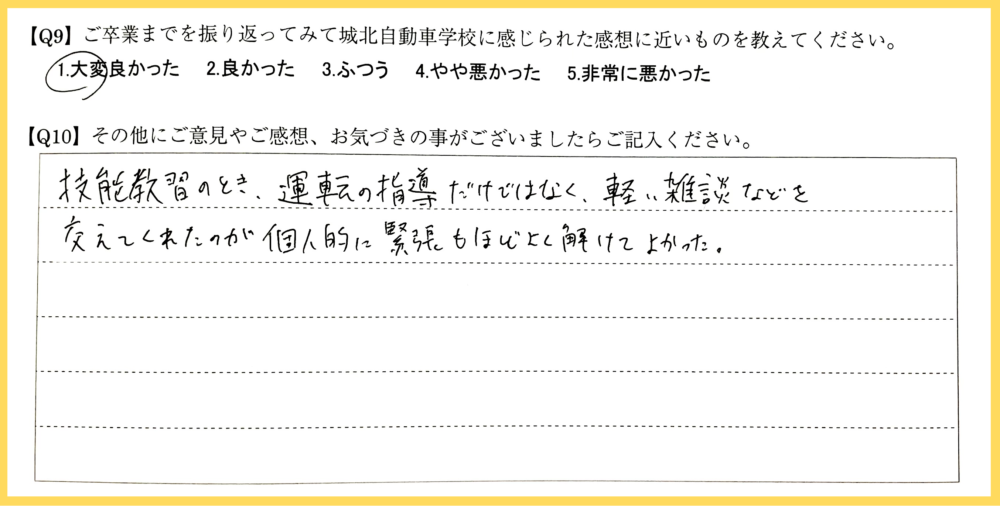 【Q9】ご卒業までを振り返ってみて城北自動車学校に感じられた感想に近いものを教えてください。
1.大変良かった 2.良かった 3.ふつう 4.やや悪かった 5.非常に悪かった
【Q10】その他にご意見やご感想、お気づきの事がございましたらご記入ください。
技能教習のとき、運転の指導だけではなく、軽い雑談などを
交えてくれたのが個人的に緊張もほどよく解けてよかった。